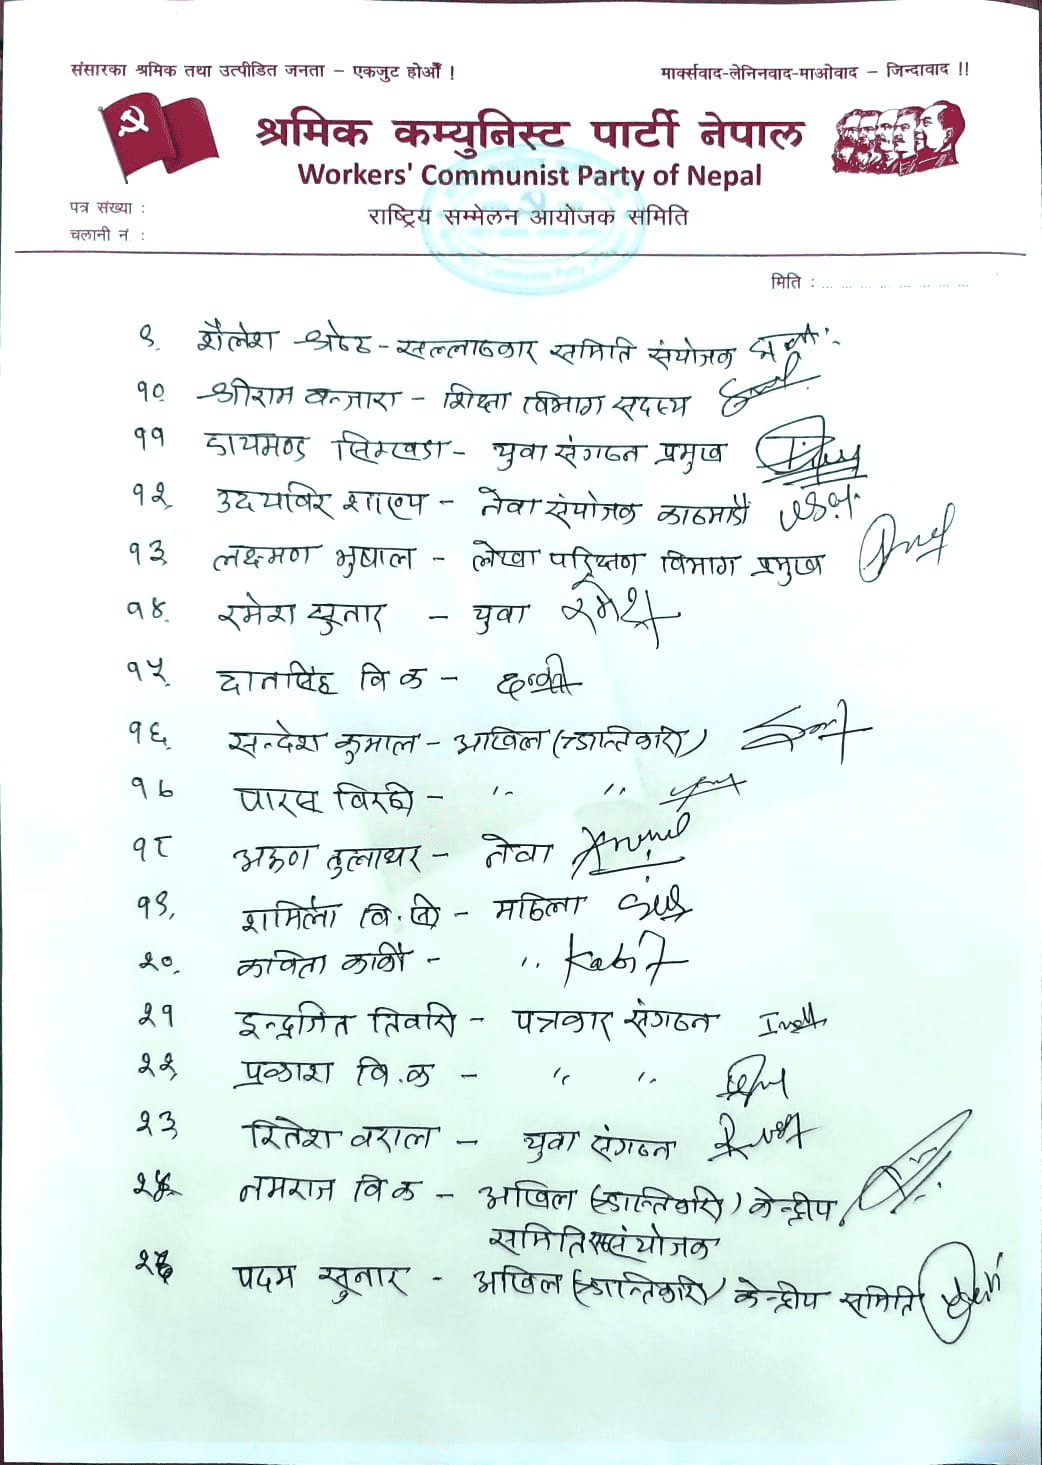 संसारका श्रमिक तथा उत्पीडित जनता – एकजुट होऔँ !
मार्क्सवाद-लेनिनवाद-माओवाद – जिन्दावाद !!
श्रमिक कम्युनिस्ट पार्टी नेपाल
Workers' Communist Party of Nepal
राष्ट्रिय सम्मेलन आयोजक समिति
पत्र संख्या :
चलानी नं :
मिति : ... ... ... ... ... ... ... ...
९. शैलेश श्रेष्ठ - सल्लाहकार समिति संयोजक
१० श्रीराम बन्जारा - शिक्षा विभाग सदस्य
११ डायमण्ड सिम्खडा - युवा संगठन प्रमुख
१२. उदयविर शाल्य - नेवा संयोजक काठमाडौं
१३ लक्ष्मण भुषाल - लेखा परिक्षण विभाग प्रमुख
१४. रमेश सुनार - युवा रमेश
१५. दानसिंह वि क -
१६. सन्देश कुमाल - अखिल (क्रान्तिकारी)
१७ पारस विरही - " "
१८ अरुण तुलाधर - नेवा
१९. शर्मिला वि. सी - महिला
२०. कविता कार्की - "
२१ इन्द्रजित तिवारी - पत्रकार संगठन
२२. प्रकाश वि.क - " "
२३ रितेश वराल - युवा संगठन
२४. नमराज वि क - अखिल (क्रान्तिकारी) केन्द्रीय
समिति संयोजक
पदम सुनार - अखिल (क्रान्तिकारी) केन्द्रीय समिति